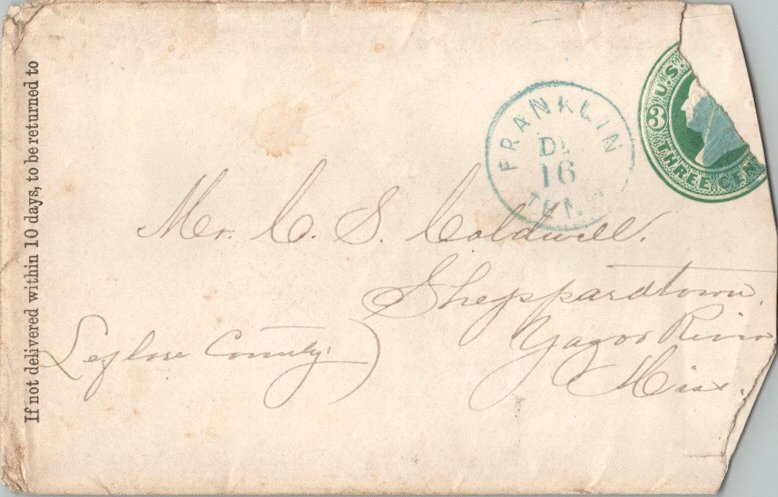 If not delivered within 10 days, to be returned to
FRANKLIN
DE
16
TENN
U.S.
3
THREE CE
Mr. C. S. Coldwell.
Sheppardtown.
Yazoo River
Miss.
Leflore County.)